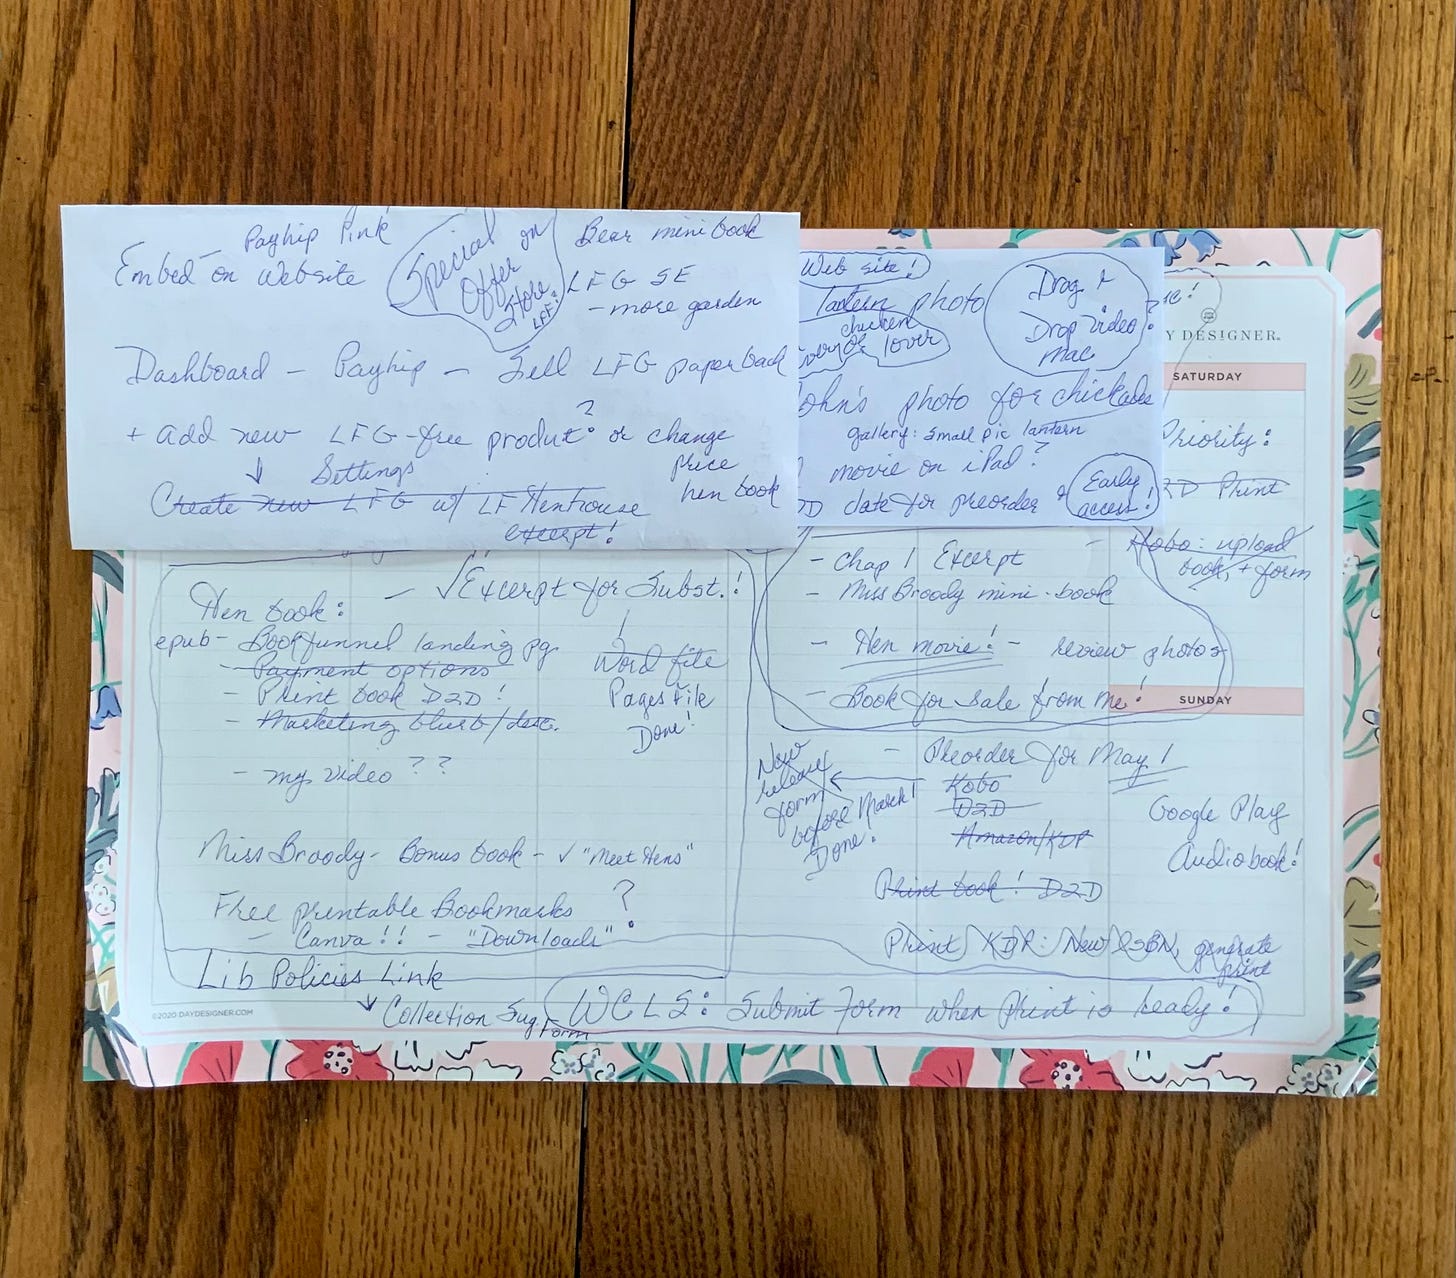 Payhip Link
Embed on website
Special
Offer on
Store
LFF:
Bear mini book
LFG SE
- more garden
Dashboard - Payhip - Sell LFG paperback
+ add new LFG-free product? or change
price
hen book
Settings
Create new LFG w/ LF Henhouse
excerpt!
Web site!
lantern photo
chicken
lover
Drag &
Drop video?
Mac
John's photo for chickades
gallery: small pic lantern
movie on iPad?
date for preorder
Early
access!
DAY DESIGNER.
SATURDAY
Priority:
D2D Print
Kobo: upload
book, + form
- Chap 1 Excerpt
- Miss Broody mini-book
- Hen movie! - review photos
- Book for Sale from me!
SUNDAY
Hen book:
- √ Excerpt for Subst.!
epub - Bookfunnel landing pg
- Payment options
- Print book D2D!
- Marketing blurb/desc.
Word file
Pages file
Done!
- my video ??
Miss Broody - Bonus book - √ "Meet Hens"
Free printable Bookmarks ?
- Canva!! - "Downloads"
Lib Policies Link
Collection Sug Form
WCLS: Submit Form when Print is ready!
- Preorder for May!
Kobo
D2D
Amazon/KDP
New
release
form
before March!
Done!
Google Play
Audiobook!
Print book! D2D
Print KDP: New ISBN, generate
print
©2020 DAYDESIGNER.COM